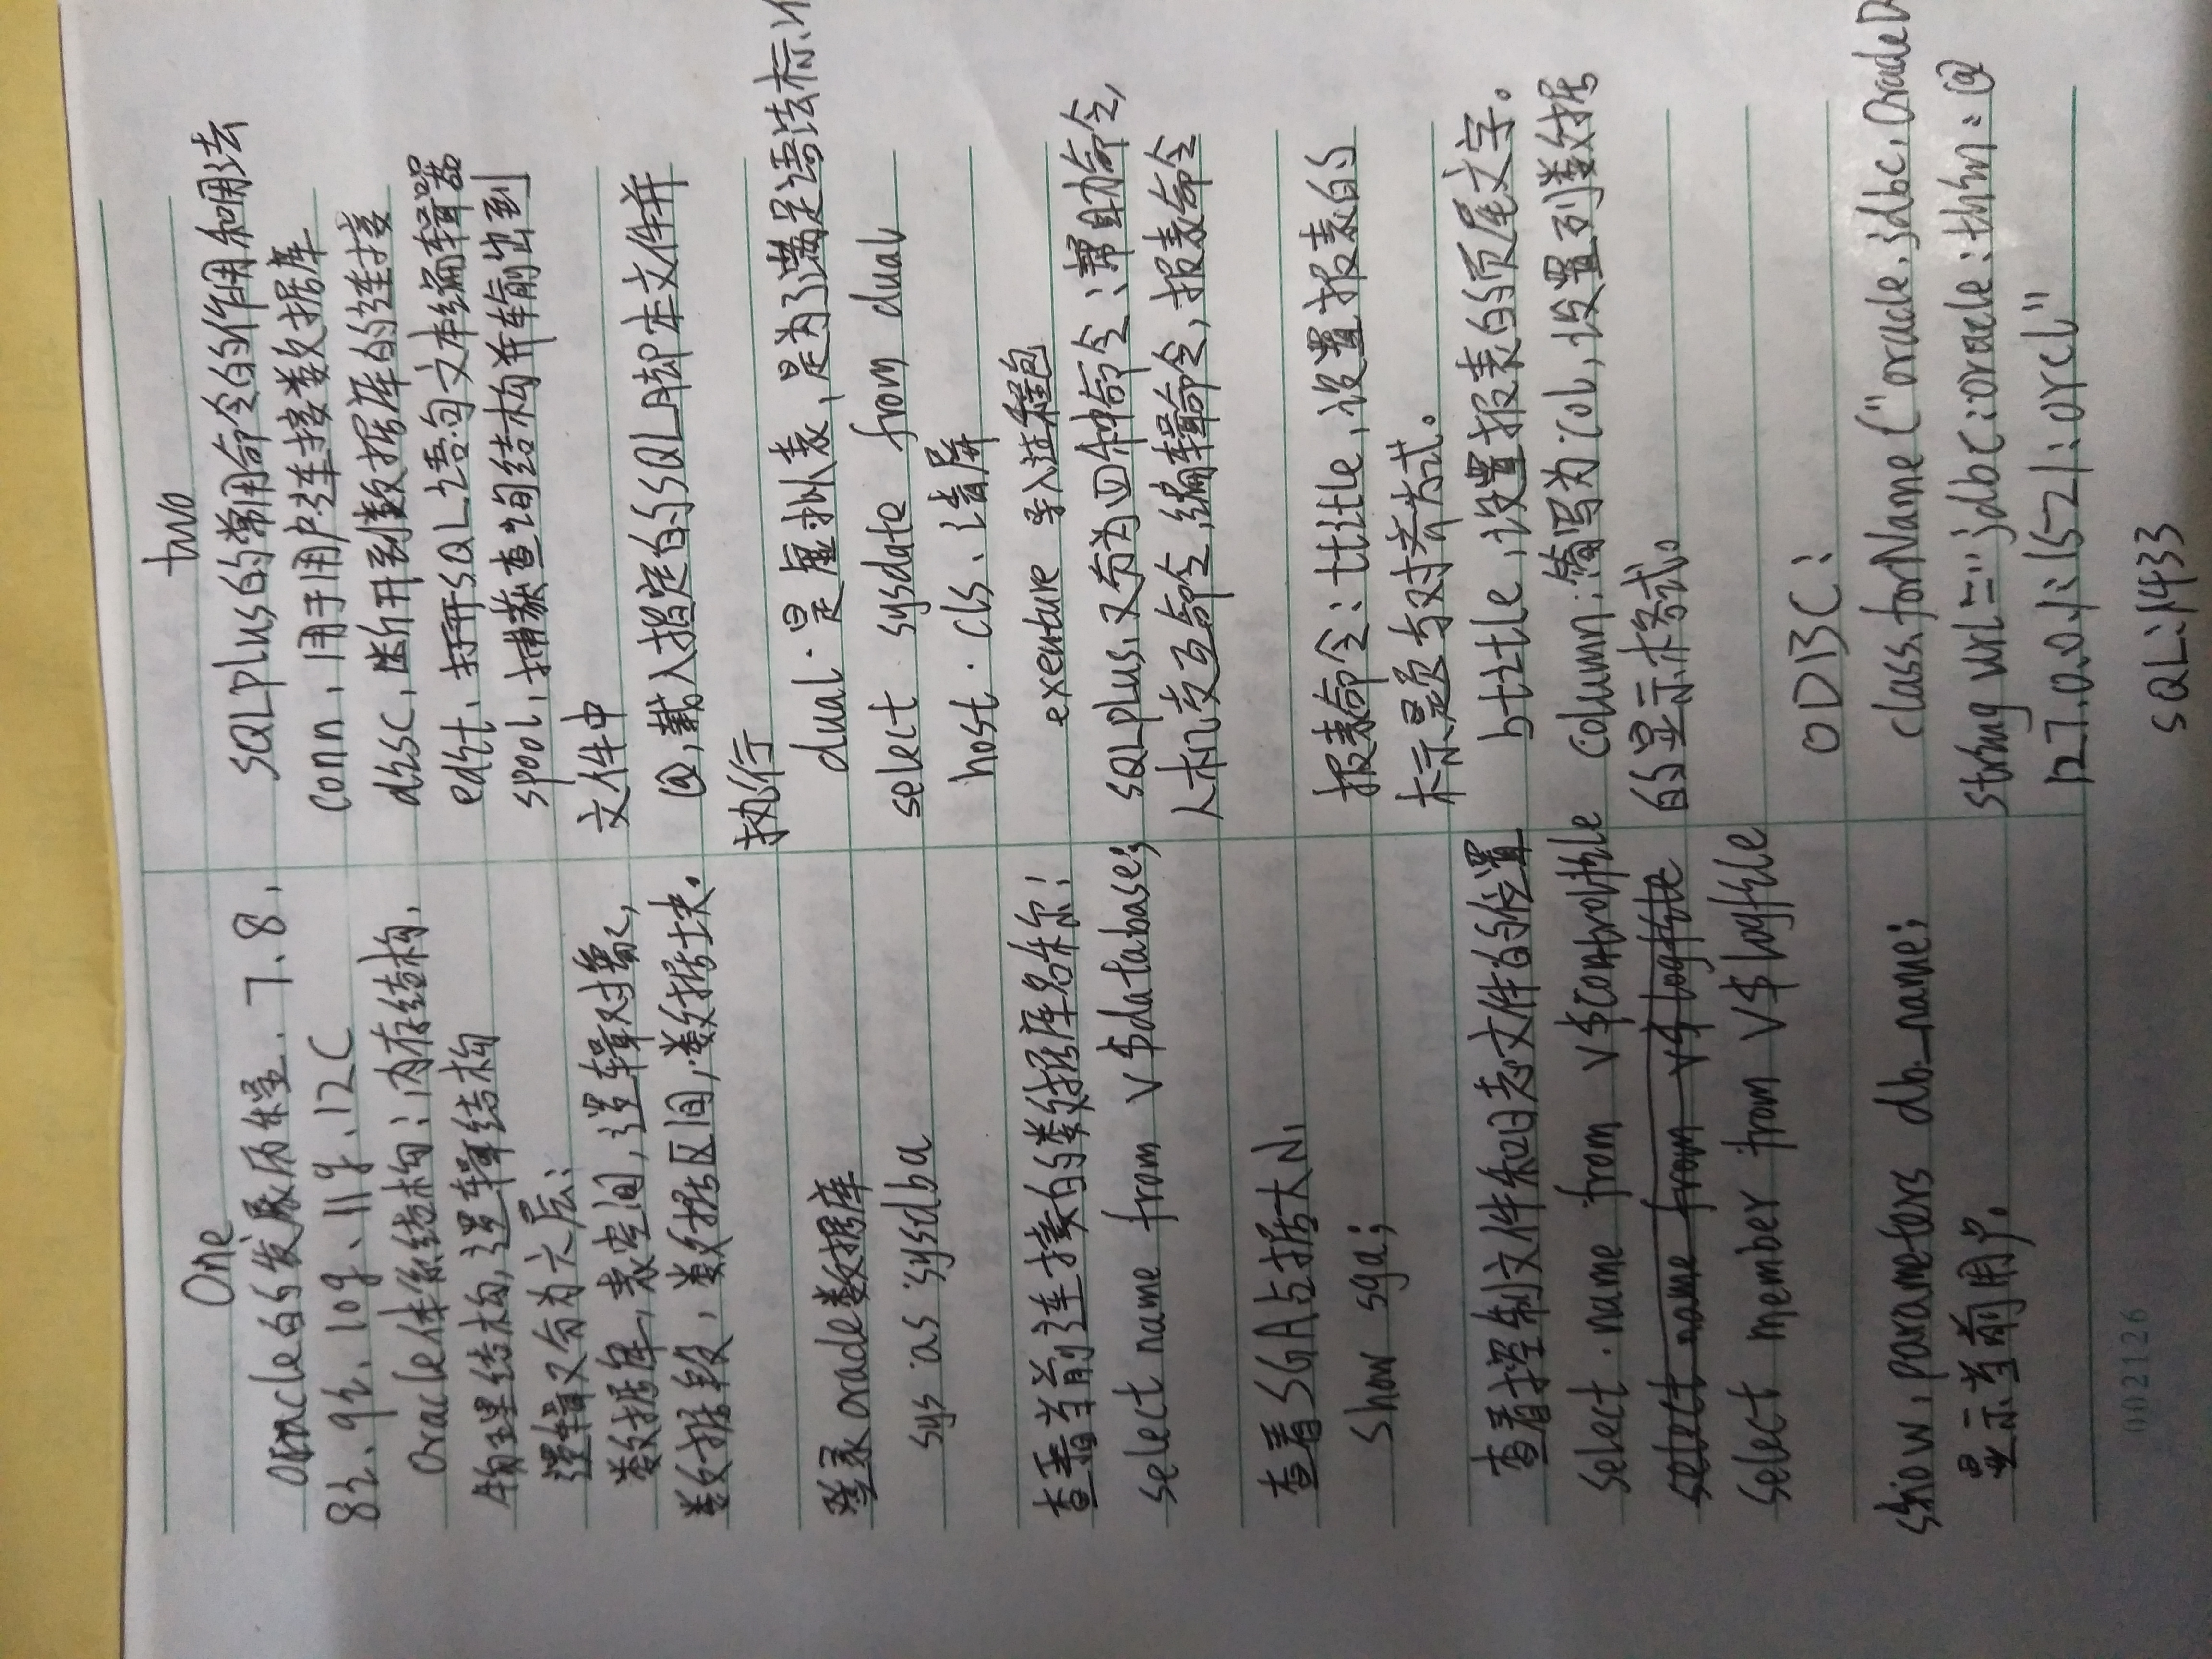 One
oracle的发展历程. 7.8.
8i. 9i. 10g. 11g. 12C
Oracle体系结构:内存结构,
物理结构,逻辑结构
逻辑又分为六层:
数据库,表空间,逻辑对象,
数据段,数据区间,数据块。
登录oracle数据库
sys as sysdba
查看当前连接的数据库名称:
select name from v$database;
查看SGA占据大小
show sga;
查看控制文件和日志文件的位置
select name from v$controlfile
select name from v$logfile
select member from v$logfile
show parameters db_name;
显示当前用户。
0021126
two
SQLplus的常用命令的作用和用法
conn,用于用户连接数据库
disc,断开到数据库的连接
edit,打开SQL语句文本编辑器
spool,捕获查询结构并输出到
文件中
@,载入指定的SQL脚本文件并
执行
dual.是虚拟表,是为了满足语法标准
select sysdate from dual
host.cls.清屏
exenture 导入过程包
SQLplus,又分为四种命令:帮助命令,
人机交互命令,编辑命令,报表命令
报表命令:ttitle,设置报表的
标示是否与对齐方式。
btitle,设置报表的页尾文字。
column:简写为col,设置列数据
的显示格式。
ODBC:
class.forName("oracle.jdbc.OracleD
string url="jdbc:oracle:thin:@
127.0.0.1:1521:orcl"
SQL:1433